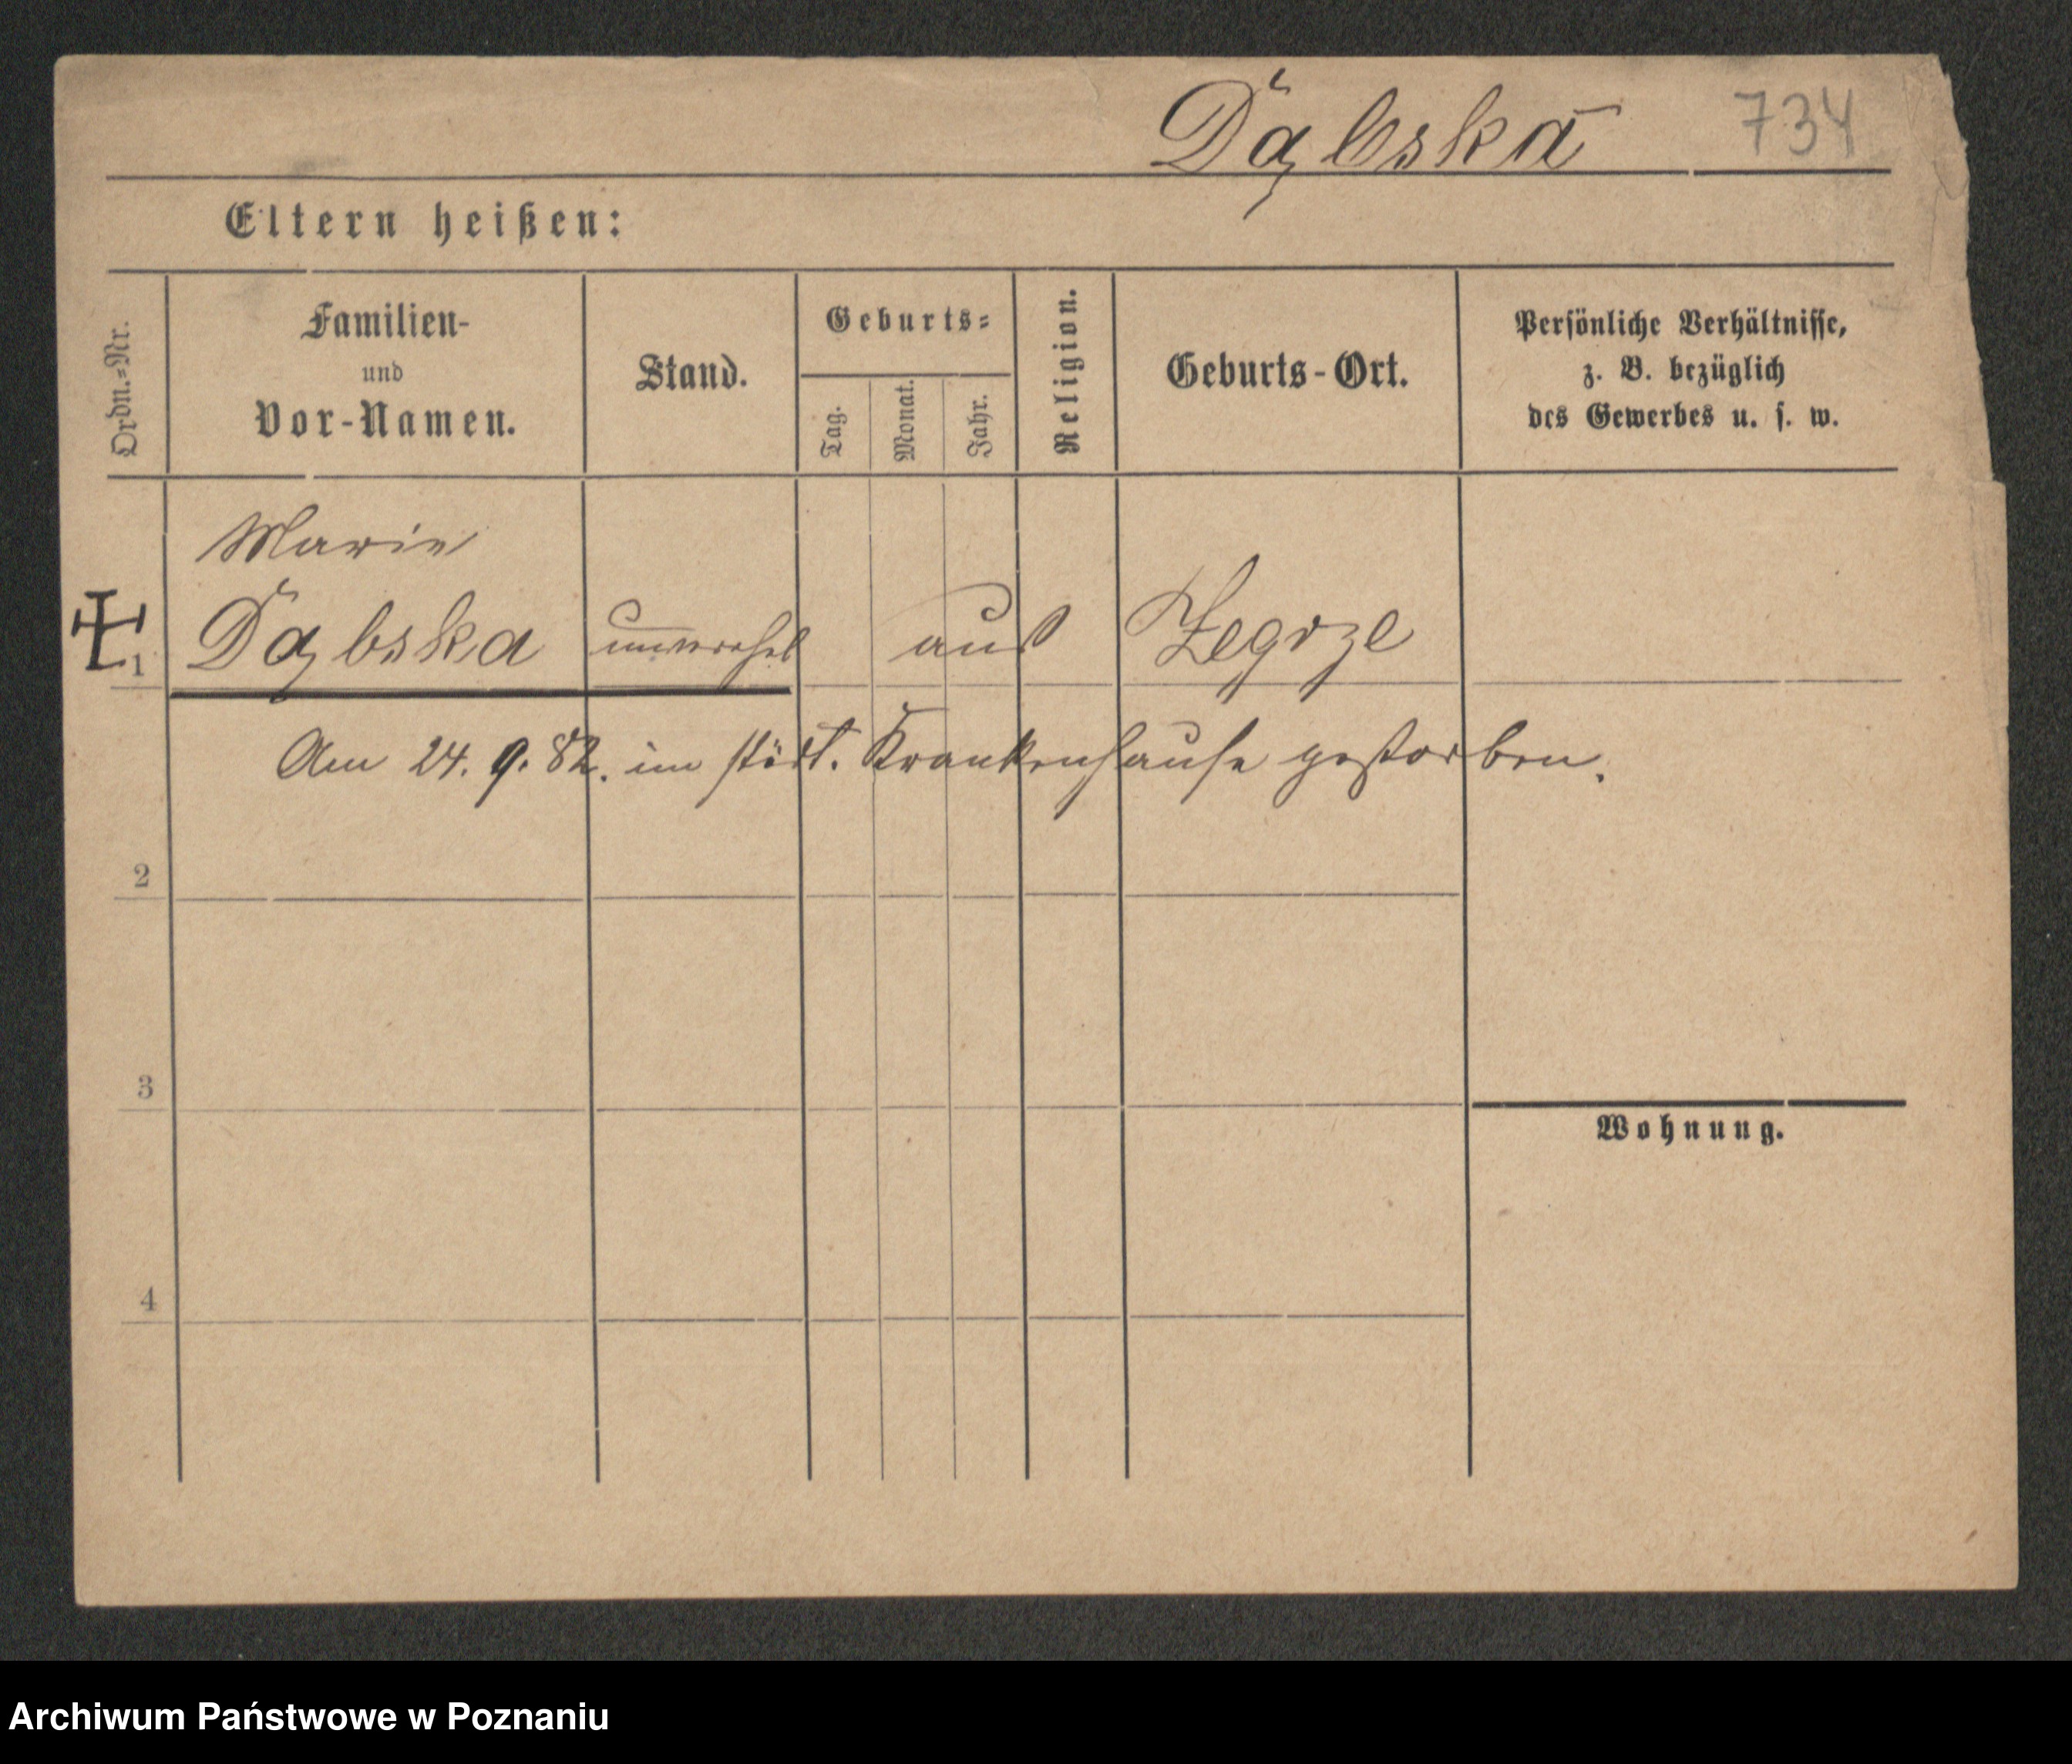 Dąbska 734
Eltern heißen:
Ordn.=Nr.
Familien-
und
Vor-Namen.
Stand.
Geburts=
Tag.
Monat.
Jahr.
Religion.
Geburts-Ort.
Persönliche Verhältnisse,
z. B. bezüglich
des Gewerbes u. s. w.
Marie
1 Dąbska unverehel aus Zegrze
Am 24. 9. 82. im städt. Krankenhause gestorben.
2
3
Wohnung.
4
Archiwum Państwowe w Poznaniu